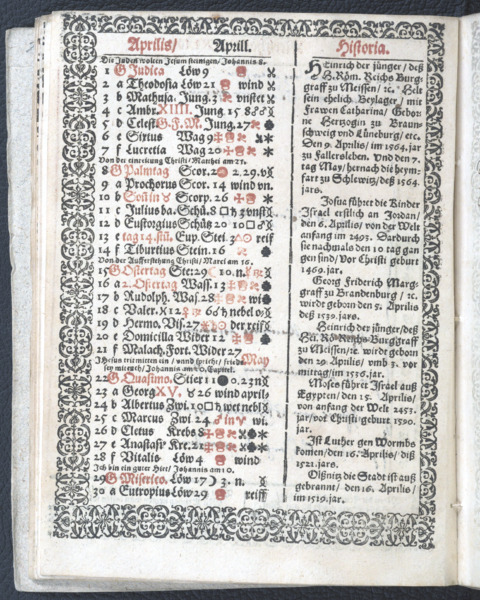 Aprilis/ Aprill.
Die Juden wolten Jesum steinigen/Johannis 8.
1 G Judica Löw 9
2 a Theodosia Löw 21 wind
3 b Mathusa. Jung. 3 vnstet
4 c Ambr. XIIII. Jung 15
5 d Celest. G. F. M. Jung. 27
6 e Sixtus Wag 9
7 f Lucretia Wag 20
Von der einreitung Christi/Matthei am 21.
8 G Palmtag Scor. 2 2.29.v
9 a Prochorus Scor. 14 wind vn.
10 b Scorp. 26
11 c Julius ba. Schü. 8 vnst
12 d Eustorgius Schüs 20 10
13 e tag 14. stü. Eup. Stei. 3 reif
14 f Tiburtius Stein. 16
Von der Aufferstehung Christi/Marci am 16.
15 G Ostertag Ste: 29 10.n.
16 a 2. Ostertag Wass. 13
17 b Rudolph. Was. 28 wi
18 c Valer. 12 nebel
19 d Hermo. Vis. 27 der reif
20 e Domicilla Wider 12
21 f Malach. Fort. Wider 27
Jhesus trit mitten ein/vnnd spricht/Fried May
sey mit euch/Johannis am 20. Capitel.
22 G Quasimo. Stier 11 0.23n
23 a Georg XV. 26 wind aprils
24 b Albertus Zwi. 10 wet nebl
25 c Marcus Zwi 24 in wi.
26 d Cletus Krebs 8
27 e Anastasi Kre. 21
28 f Vitalis Löw 4 wind
Ich bin ein guter Hirt/Johannis am 10.
29 G Miserico. Löw 17 3. n.
30 a Eutropius Löw 29 reiff
Historia.
HEinrich der jünger/deß
H. Röm. Reichs Burg-
graff zu Meissen/ ꝛc. Helt
sein ehelich Beylager/mit
Frawen Catharina/Gebor-
ne Hertzogin zu Braun-
schweig vnd Lüneburg/etc.
Den 9. Aprilis/im 1564. jar
zu Fallersleben. Vnd den 7.
tag May/hernach die heym-
fart zu Schlewitz/deß 1564.
jars.
Josua führt die Kinder
Israel erstlich an Jordan/
den 6. Aprilis/von der Welt
anfang im 2493. Dardurch
sie nachmals den 10 tag gan
gen sind/vor Christi geburt
1469. jar.
Georg Friderich Marg-
graff zu Brandenburg/ ꝛc.
wirdt geborn den 5. Aprilis
deß 1539. jars.
Heinrich der jünger/deß
Hei. Rö. Reichs Burggraff
zu Meissen/ꝛc. wirdt geborn
den 29. Aprilis/vmb 3. vor
mitrag/im 1536. jar.
Moses führet Israel auß
Egypten/den 15. Aprilis/
von anfang der Welt 2453.
jar/vor Christi geburt 1509.
jar.
Ist Luther gen Wormbs
komen/den 16. Aprilis/diß
1521. jars.
Olßnitz die Stadt ist auß
gebrannt/den 16. Aprilis/
im 1519. jar.